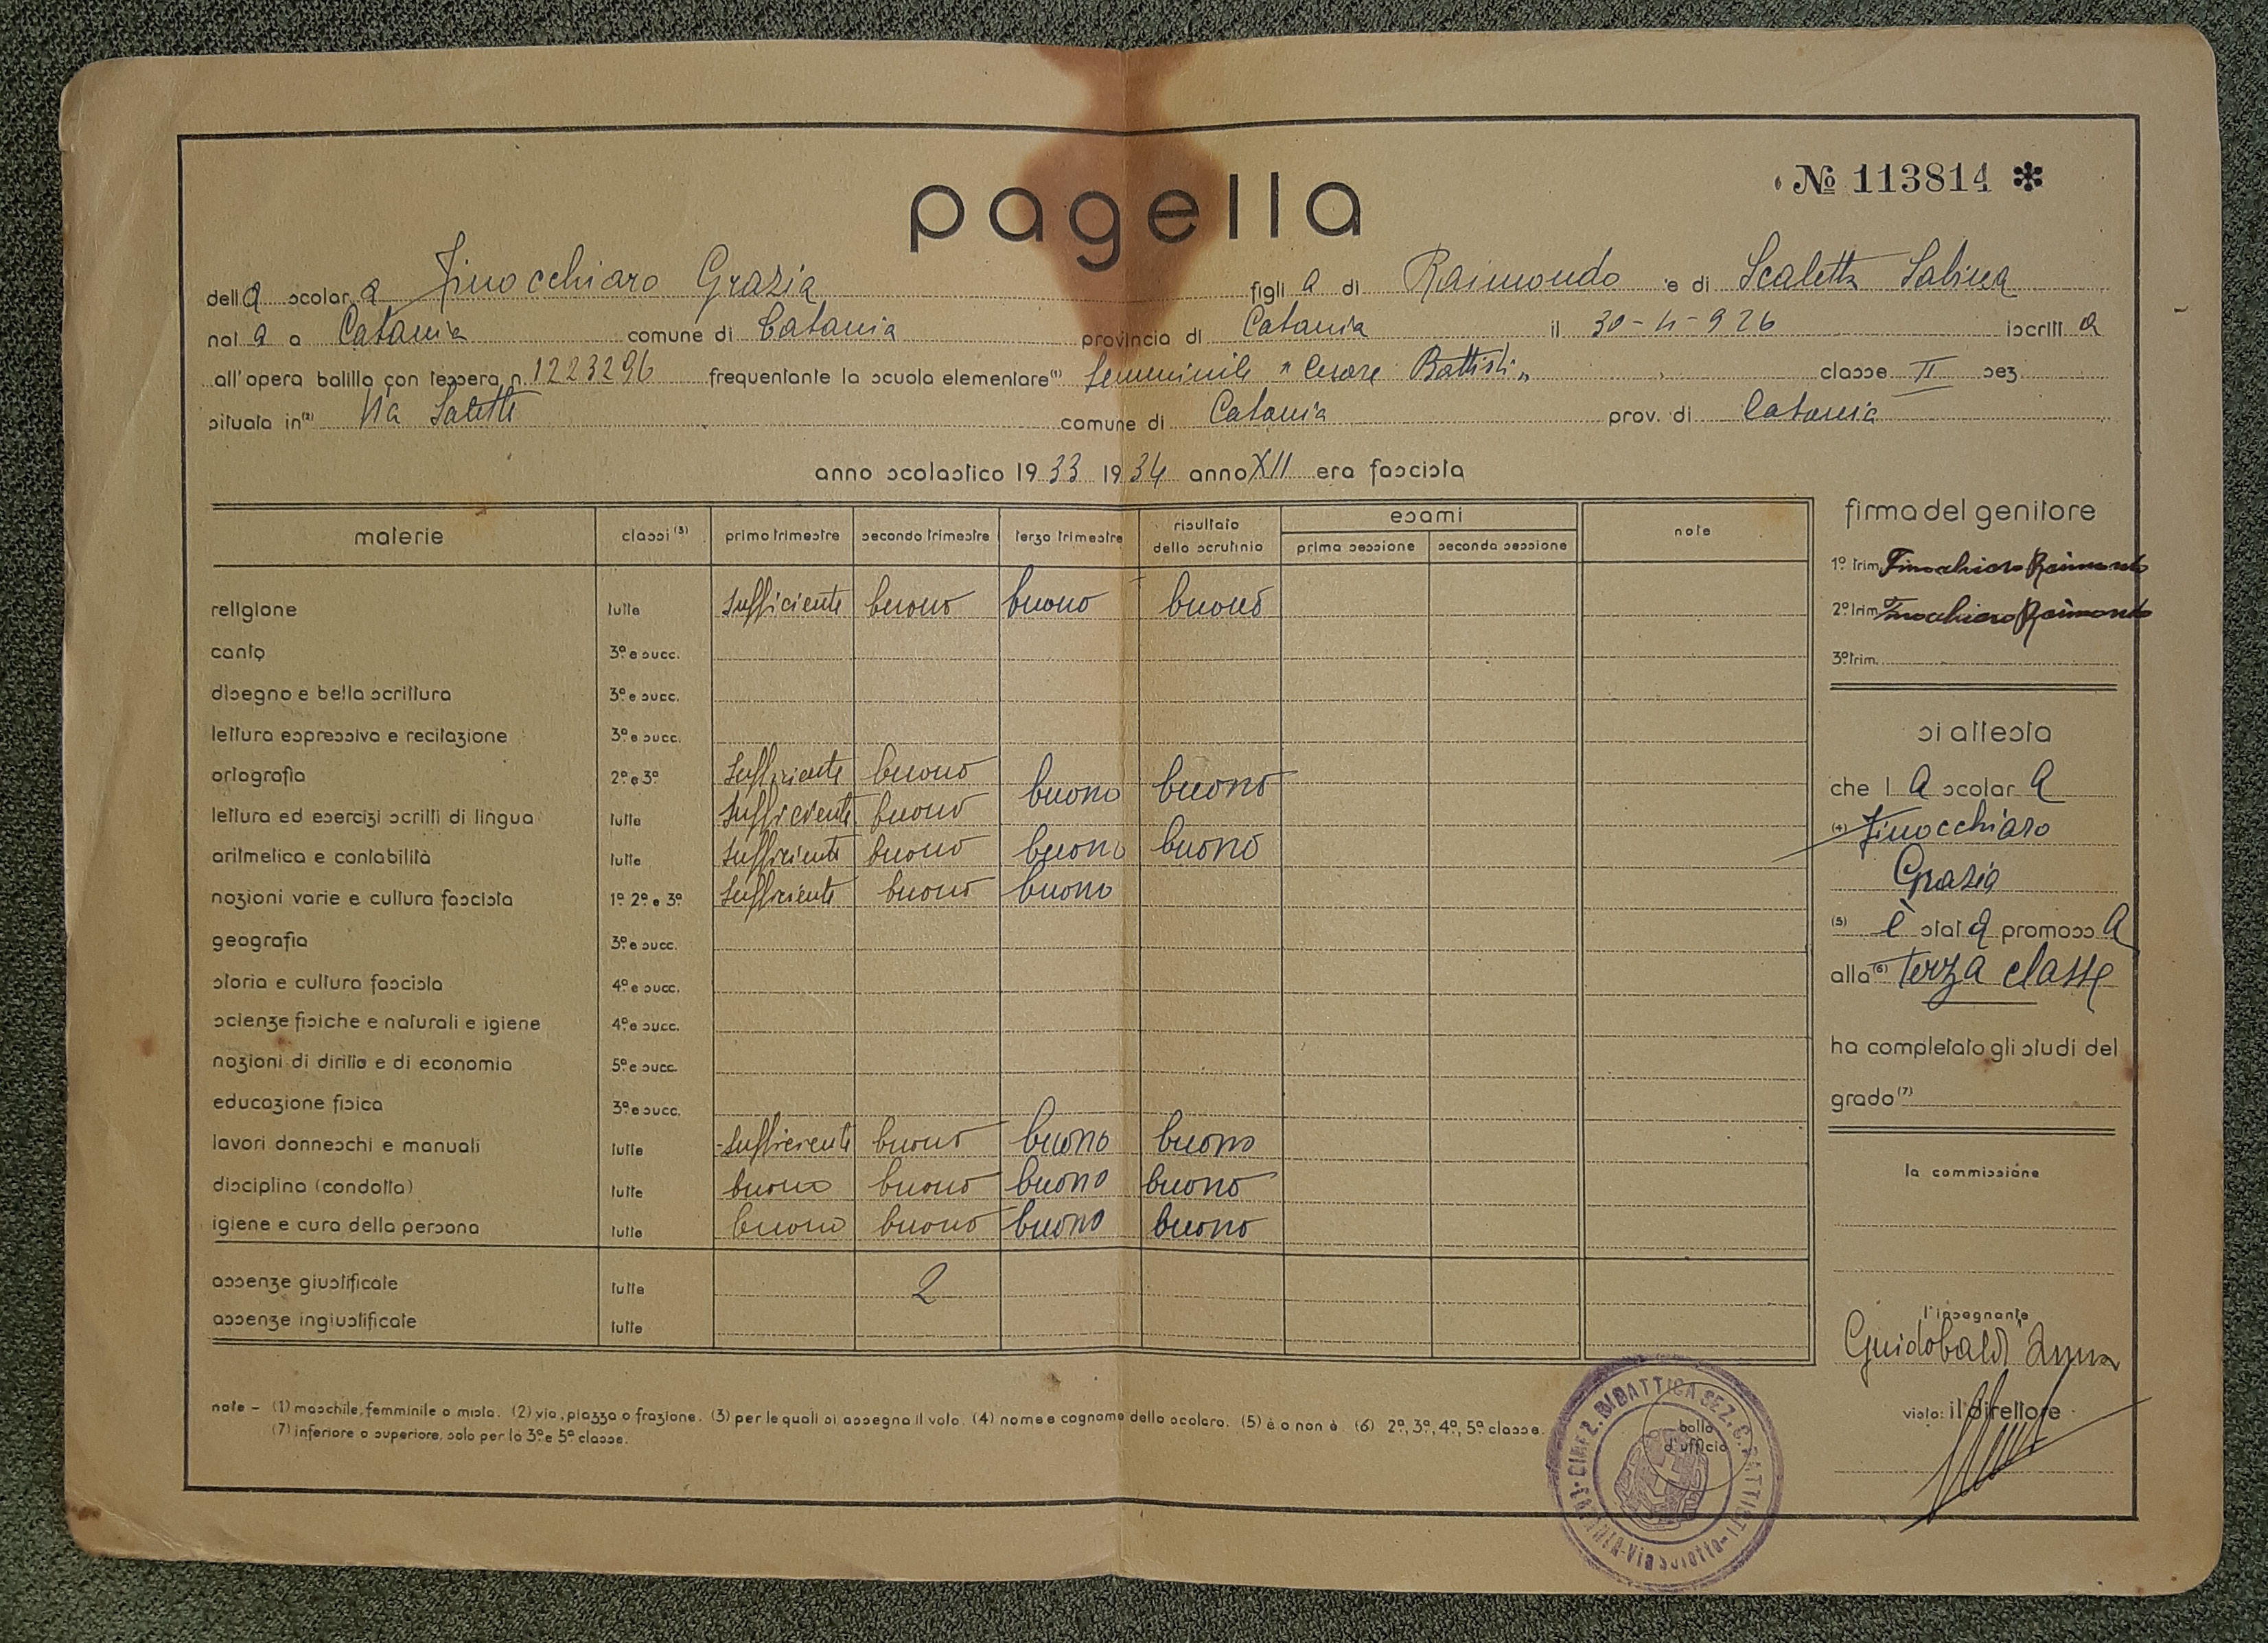 pagella
№ 113814 ✻
della scolara Finocchiaro Grazia figlia di Raimondo e di Scaletta Sabina
nata a Catania comune di Catania provincia di Catania il 30-4-926 iscritta
all'opera balilla con tessera n. 1223296 frequentante la scuola elementare (1) femminile "Cesare Battisti" classe II sez
situata in (2) Via comune di Catania prov. di Catania
anno scolastico 1933 1934 anno XII era fascista
materie classi (3) primo trimestre secondo trimestre terzo trimestre risultato dello scrutinio esami prima sessione seconda sessione note
religione tutte sufficiente buono buono buono
canto 3ª e succ.
disegno e bella scrittura 3ª e succ.
lettura espressiva e recitazione 3ª e succ.
ortografia 2ª e 3ª sufficiente buono
lettura ed esercizi scritti di lingua tutte sufficiente buono buono buono
aritmetica e contabilità tutte sufficiente buono buono buono
nozioni varie e cultura fascista 1ª 2ª e 3ª sufficiente buono buono
geografia 3ª e succ.
storia e cultura fascista 4ª e succ.
scienze fisiche e naturali e igiene 4ª e succ.
nozioni di diritto e di economia 5ª e succ.
educazione fisica 3ª e succ.
lavori donneschi e manuali tutte sufficiente buono buono buono
disciplina (condotta) tutte buono buono buono buono
igiene e cura della persona tutte buono buono buono buono
assenze giustificate tutte 2
assenze ingiustificate tutte
firma del genitore
1º trim. Finocchiaro Raimondo
2º trim. Finocchiaro Raimondo
3º trim.
si attesta
che la scolara
(4) Finocchiaro
Grazia
(5) è stata promossa
alla (6) terza classe
ha completato gli studi del
grado (7)
la commissione
l'insegnante
Guidobaldi Anna
visto: il direttore
note - (1) maschile, femminile o mista. (2) via, piazza o frazione. (3) per le quali si assegna il voto. (4) nome e cognome dello scolaro. (5) è o non è. (6) 2ª, 3ª, 4ª, 5ª classe.
(7) inferiore o superiore, solo per la 3ª e 5ª classe.
bollo
d'ufficio
DIDATTICA SEZ. C. BATTISTI